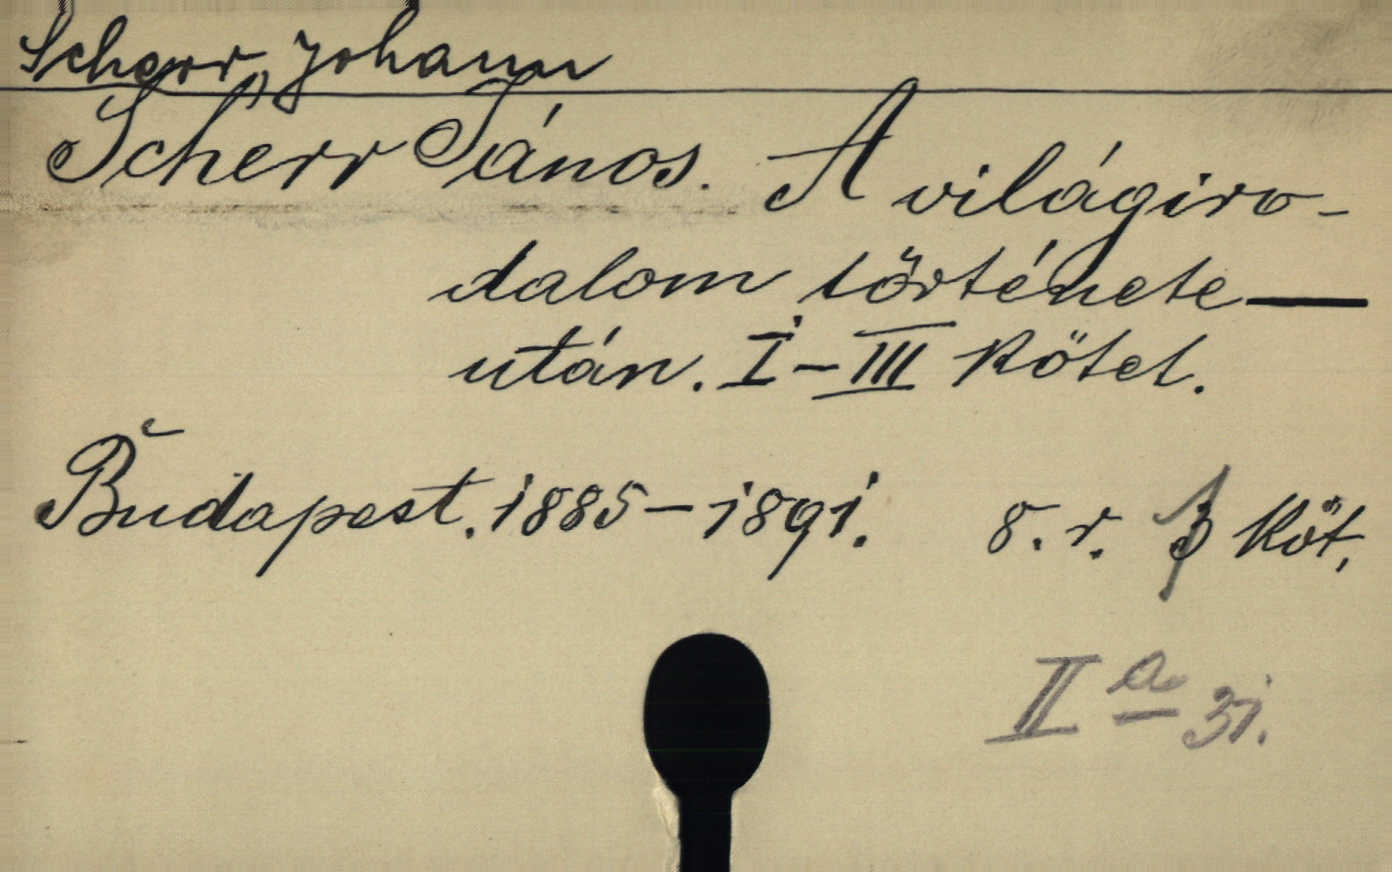 Scherr, Johann
Scherr János. A világiro-
dalom története—
után. I–III Kötet.
Budapest. 1885–1891. 8. r. 3 Köt.
II a 31.